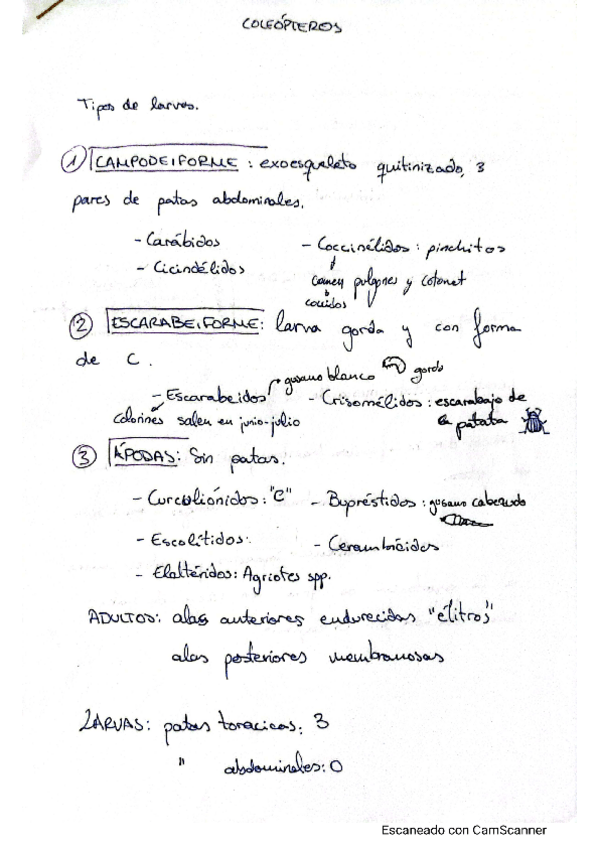 COLEÓPTEROS
Tipos de larvas.
① CAMPODEIFORME : exoesqueleto quitinizado, 3
pares de patas abdominales.
- Carábidos - Coccinélidos : pinchitos
- Cicindélidos comen pulgones y cotonet
② ESCARABEIFORME: larva gorda y con forma
de C.
gusano blanco gordo
- Escarabeidos - Crisomélidos : escarabajo de
colorines salen en junio-julio la patata
③ ÁPODAS: Sin patas.
- Curculiónidos : "C" - Bupréstidos : gusano cabezudo
- Escolítidos. - Cerambícidos
- Elatéridos: Agriotes spp.
ADULTOS: alas anteriores endurecidas "élitros"
alas posteriores membranosas
LARVAS: patas toracicas: 3
" abdominales: 0
Escaneado con CamScanner